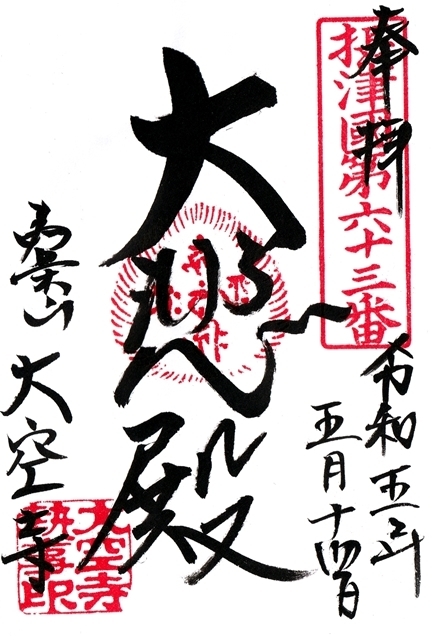 奉拝
摂津國第六十三番
令和五年
五月十四日
大悲殿
大空寺
大空寺
執事印